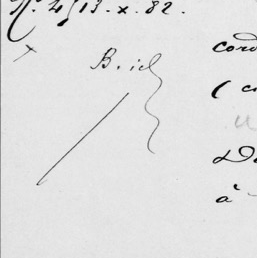 N. 4/13.x.82.
B. id
cord
(c
De
à